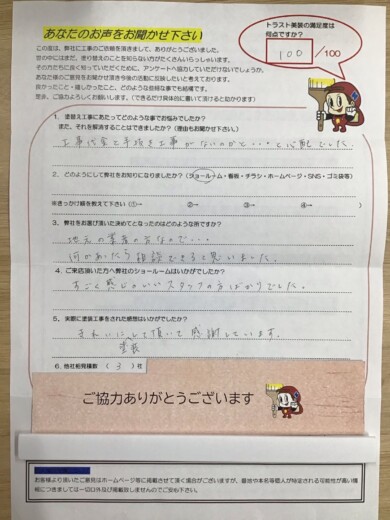 あなたのお声をお聞かせ下さい
この度は、弊社に工事のご依頼を頂きまして、ありがとうございました。
世の中にはまだ、塗り替えのことを知らない方がたくさんいらっしゃいます。
その方たちに良く知っていただくために、アンケートへ協力していただけないでしょうか。
あなた様のご意見をお聞かせ頂き今後の活動に反映したいと考えております。
良かったこと・嬉しかったこと、どのような些細な事でも結構です。
是非、ご協力よろしくお願いします。（できるだけ具体的に書いて頂けると助かります）
トラスト美装の満足度は
何点ですか？
100 /100
1. 塗替え工事にあたってどのような事でお悩みでしたか？
また、それを解消することはできましたか？（理由もお聞かせ下さい。）
工事代金と手抜き工事がないのかと・・・と心配でした。
2. どのようにして弊社をお知りになりましたか？（ショールーム・看板・チラシ・ホームページ・SNS・ゴミ袋等）
※きっかけ順を教えて下さい（①→ ②→ ③→ ④→
3. 弊社をお選び頂いた決めてとなったのはどのような所ですか？
地元の業者の方なので・・・
何かあったら相談できると思いました。
4. ご来店頂いた方へ弊社のショールームはいかがでしたか？
すごく感じのいいスタッフの方ばかりでした。
5. 実際に塗装工事をされた感想はいかがでしたか？
きれいにして頂いて感謝しています。
塗装
6. 他社相見積数（ 3 ）社
ご協力ありがとうございます
お客様より頂いたご意見はホームページ等に掲載させて頂く場合がございますが、番地や本名等個人が特定される可能性が高い情
報につきましては一切口外及び掲載致しませんのでご安心下さい。